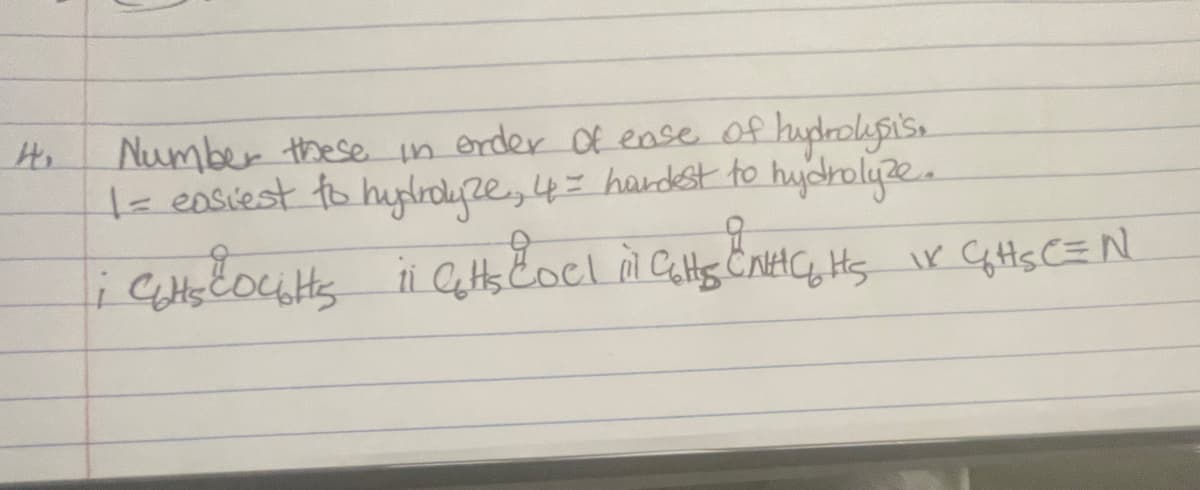 4. Number these in order of ease of hydrolysis.
1 = easiest to hydrolyze, 4 = hardest to hydrolyze.
O O O
i C6H5COC6H5 ii C6H5COCl iii C6H5CNHC6H5 iv C6H5C≡N